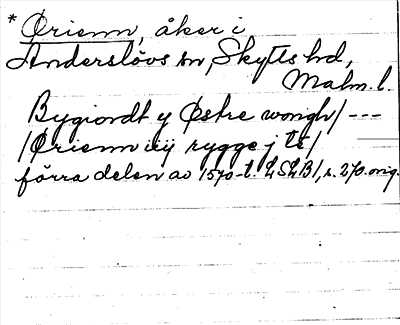 * Ørienn, åker i
Anderslövs sn, Skytts hd,
Malm. l.
Bygiordt y Østre wongh/ ---
/Ørienn iiij rygge j te/
förra delen av 1570-t. LSLB1, s. 270. orig.